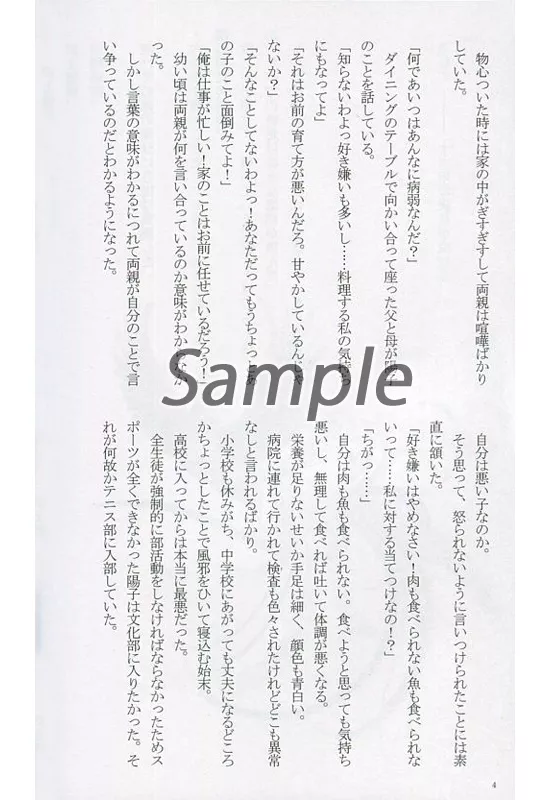 物心ついた時には家の中がぎすぎすして両親は喧嘩ばかり
していた。
「何であいつはあんなに病弱なんだ？」
ダイニングのテーブルで向かい合って座った父と母が陽子
のことを話している。
「知らないわよっ好き嫌いも多いし……料理する私の気持ち
にもなってよ」
「それはお前の育て方が悪いんだろ。甘やかしているんじゃ
ないか？」
「そんなことしてないわよっ！あなただってもうちょっとあ
の子のこと面倒みてよ！」
「俺は仕事が忙しい！家のことはお前に任せているだろう！」
幼い頃は両親が何を言い合っているのか意味がわからなか
った。
しかし言葉の意味がわかるにつれて両親が自分のことで言
い争っているのだとわかるようになった。
自分は悪い子なのか。
そう思って、怒られないように言いつけられたことには素
直に頷いた。
「好き嫌いはやめなさい！肉も食べられない魚も食べられな
いって……私に対する当てつけなの！？」
「ちがっ……」
自分は肉も魚も食べられない。食べようと思っても気持ち
悪いし、無理して食べれば吐いて体調が悪くなる。
栄養が足りないせいか手足は細く、顔色も青白い。
病院に連れて行かれて検査も色々されたけれどどこも異常
なしと言われるばかり。
小学校も休みがち、中学校にあがっても丈夫になるどころ
かちょっとしたことで風邪をひいて寝込む始末。
高校に入ってからは本当に最悪だった。
全生徒が強制的に部活動をしなければならなかったためス
ポーツが全くできなかった陽子は文化部に入りたかった。そ
れが何故かテニス部に入部していた。
Sample
4